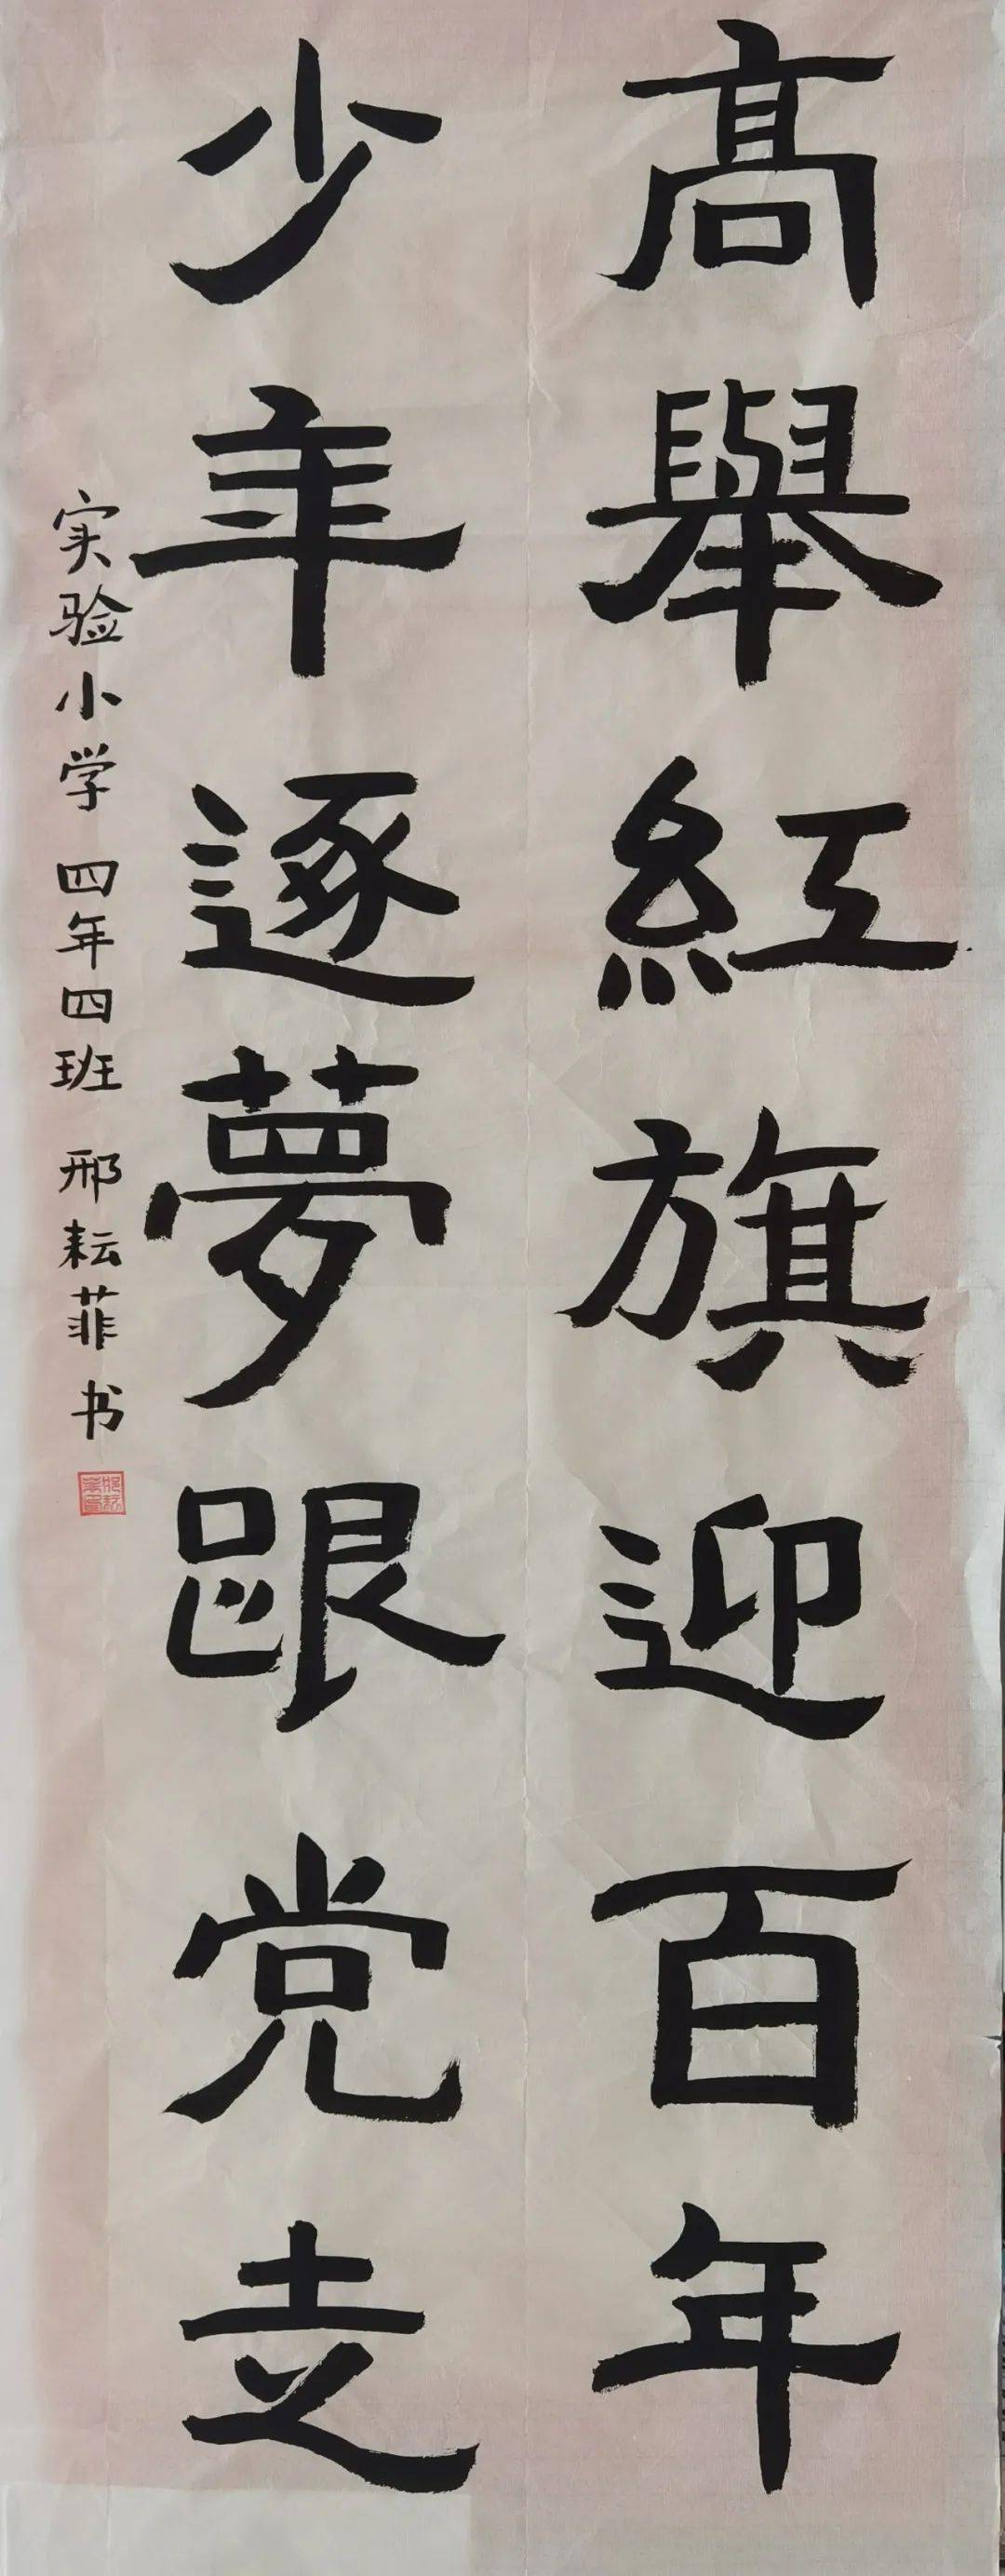 髙舉紅旗迎百年
少年逐夢跟党走
实验小学 四年四班 邢耘菲 书